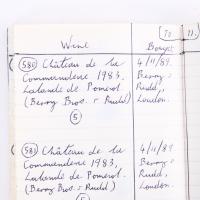 To
11.
Wine
Bought
(580) Château de la
Commanderie 1983,
Lalande de Pomerol.
(Berry Bros. & Rudd)
(5)
4/11/89.
Berry &
Rudd,
London.
Château de la
Commanderie
1983,
Lalande de Pomerol.
(Berry Bros. & Rudd)
5
4/11/89
Berry &
Rudd,
London.